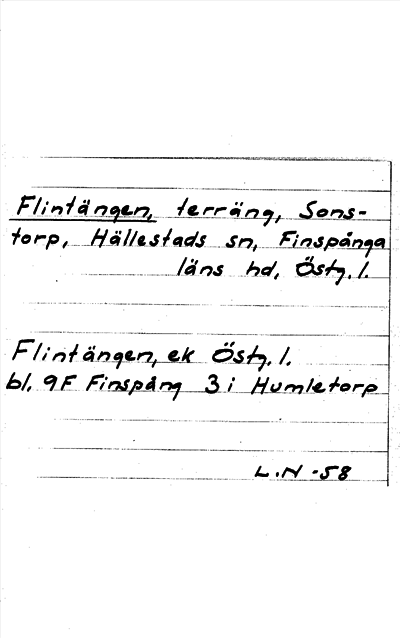 Flintängen, terräng, Sons-
torp, Hällestads sn, Finspånga
läns hd, Östg. l.
Flintängen, ek Östg. l.
bl. 9F Finspång 3i Humletorp
L.N -58